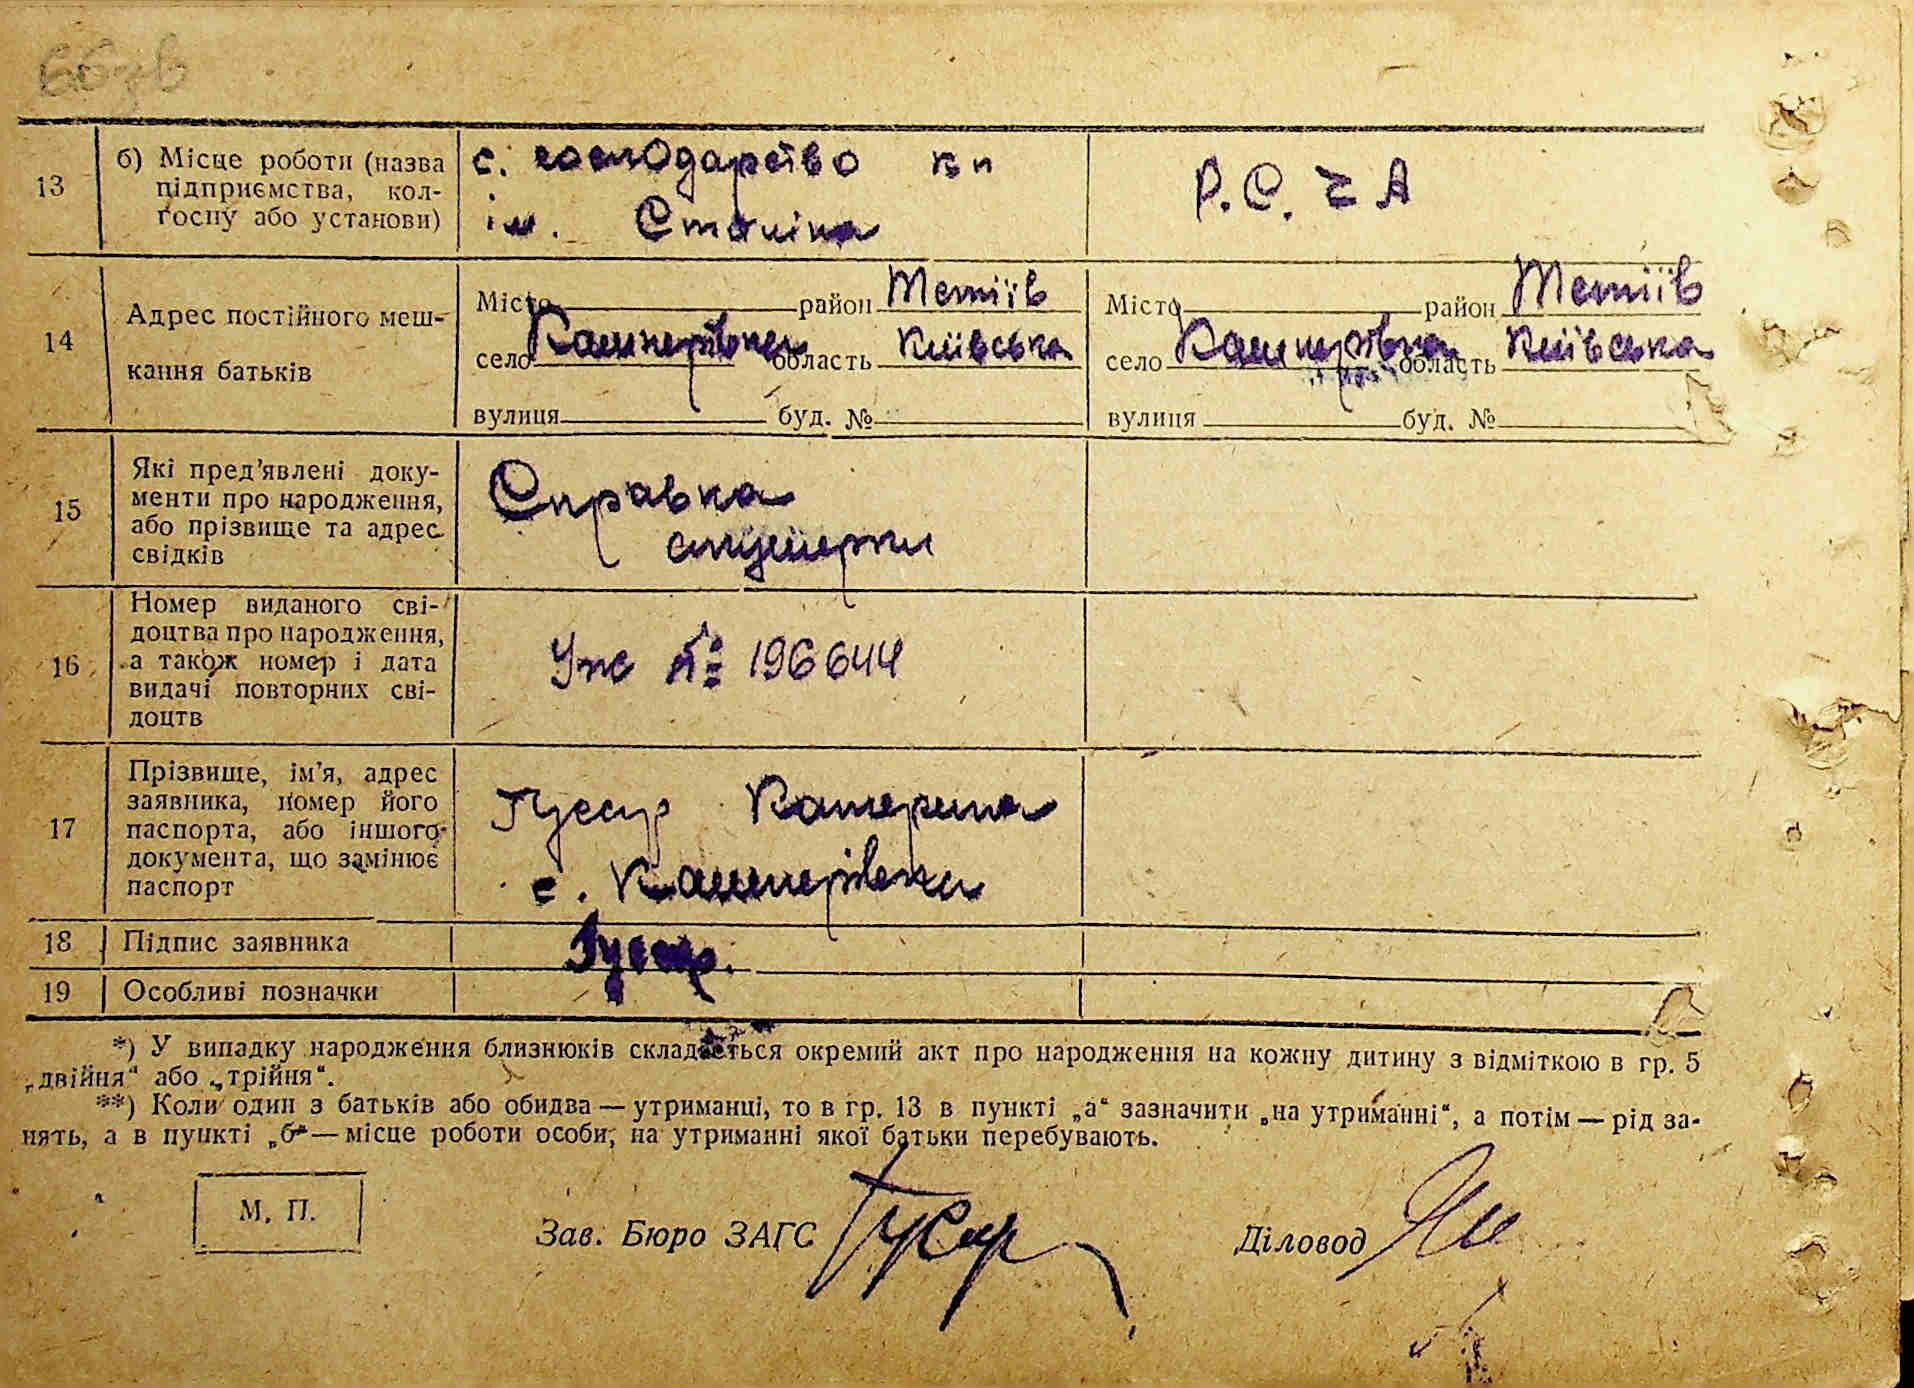 66зв
13
б) Місце роботи (назва
підприємства, кол-
госпу або установи)
с. господарство кп
ім. Сталіна
Р. С. Z А
14
Адрес постійного меш-
кання батьків
Місто район Тетіїв
село Кашперівка область Київська
вулиця буд. №
Місто район Тетіїв
село Кашперівка область Київська
вулиця буд. №
15
Які пред’явлені доку-
менти про народження,
або прізвище та адрес
свідків
Справка
акушерки
16
Номер виданого сві-
доцтва про народження,
а також номер і дата
видачі повторних сві-
доцтв
Уж № 196644
17
Прізвище, ім’я, адрес
заявника, номер його
паспорта, або іншого
документа, що замінює
паспорт
Гусар Катерина
с. Кашперівка
18
Підпис заявника
Гусар.
19
Особливі позначки
*) У випадку народження близнюків складається окремий акт про народження на кожну дитину з відміткою в гр. 5
„двійня“ або „трійня“.
**) Коли один з батьків або обидва — утриманці, то в гр. 13 в пункті „а“ зазначити „на утриманні“, а потім — рід за-
нять, а в пункті „б“ — місце роботи особи, на утриманні якої батьки перебувають.
М. П.
Зав. Бюро ЗАГС
Діловод